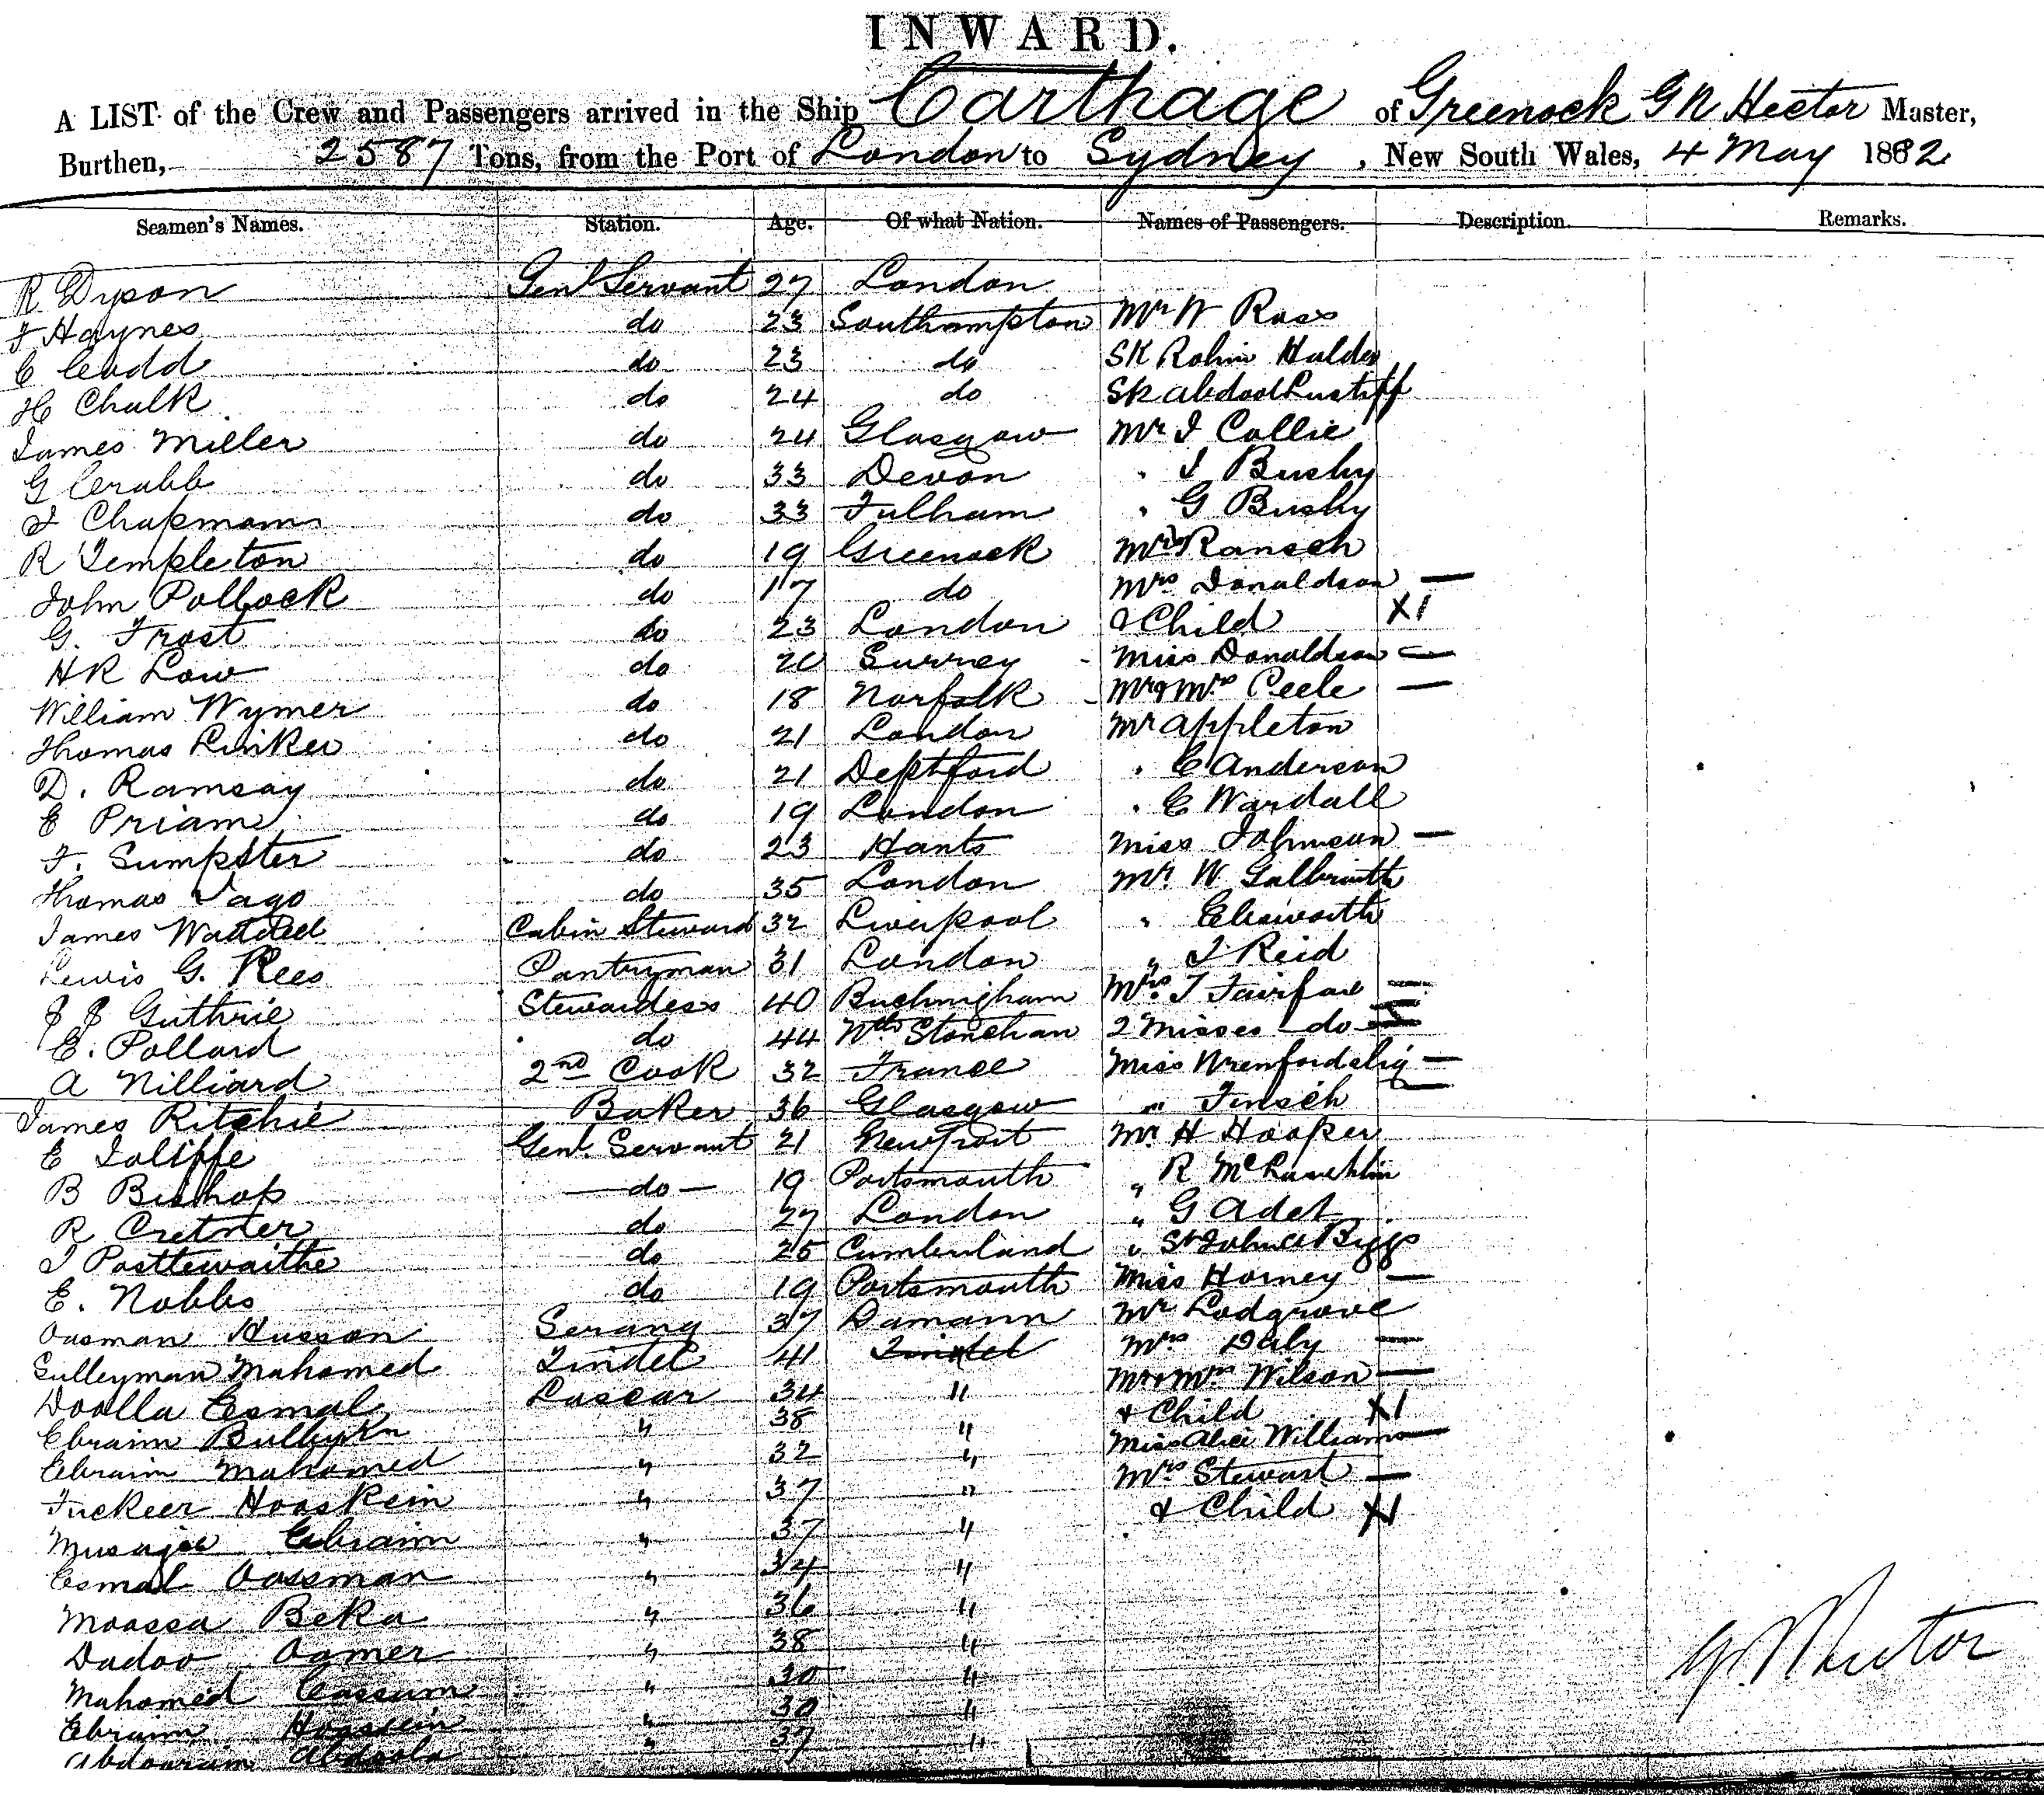 INWARD.
A LIST of the Crew and Passengers arrived in the Ship Carthage of Greenock G N Hector Master,
Burthen, 2587 Tons, from the Port of London to Sydney, New South Wales, 4 May 1882
Seamen's Names. Station. Age. Of what Nation. Names of Passengers. Description. Remarks.
R Dyson Genl Servant 27 London
F Haynes do 23 Southampton Mr W Ross
C Cudd do 23 do SK Rohim Halder
H Chalk do 24 do SK Abdool
James Miller do 24 Glasgow Mr J Collie
G Crabb do 33 Devon " J Bushy
J Chapman do 33 Fulham " G Bushy
R Templeton do 19 Greenock Ransch
John Pollock do 17 do Mrs Donaldson —
G. Frost do 23 London & Child X1
H R Low do 20 Surrey Miss Donaldson —
William Wymer do 18 Norfolk Mr & Mrs Peele —
Thomas do 21 London Mr Appleton
D. Ramsay do 21 Deptford " C Anderson
E Priam do 19 London " C Wardall
F. Sumpster do 23 Hants Miss Johnson —
Thomas Jago do 35 London Mr W Galbraith
James Cabin Steward 32 Liverpool " Elsworth
Lewis G. Rees Pantryman 31 London " J Reid
Guthrie Stewardess 40 Buckingham Mrs J Fairfax —
E. Pollard do 44 Nth Stoneham 2 Misses do —
A Nilliard 2nd Cook 32 France Miss —
James Ritchie Baker 36 Glasgow " Finsch —
E Joliffe Genl. Servant 21 Newport Mr H Hooper
B Bishop — do — 19 Portsmouth " R McLauchlin
R Cretner do 27 London " G Adet
J Posttewaithe do 25 Cumberland " St John Biggs
E. Nobbs do 19 Portsmouth Miss Horney —
Oosman Hussan Serang 37 Damann Mr Lodgrove
Sulleyman Mahomed Tindel 41 Tindel Mrs Daly —
Doolla Esmal Lascar 34 " Mr & Mrs Wilson —
Ebraim " 38 " & Child X1
Ebraim Mahomed " 32 " Miss Alice Williams —
Fuckeer Hooskein " 37 " Mrs Stewart —
Musajee Ebraim " 37 " & Child X1
Esmal Oossman " 34 "
Moossa Beka " 36 "
Dadoo Oomer " 38 "
Mahomed Cassum " 30 "
Ebraim Hossein " 30 "
Abdoola " 37 "
G N Hector